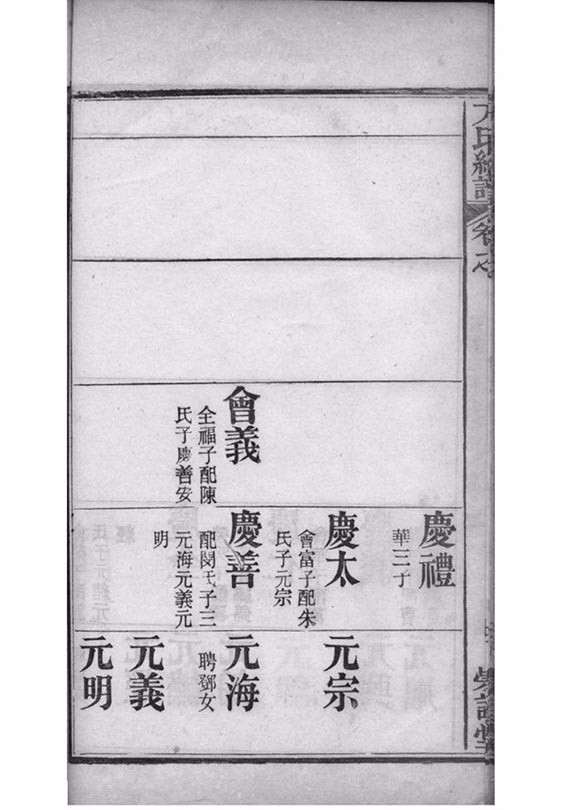 方氏總譜
會義
全福子配陳
氏子慶善安
慶禮
華三子
慶太
會富子配朱
氏子元宗
慶善
配閔氏子三
元海元義元
明
元宗
元海
聘鄧女
元義
元明